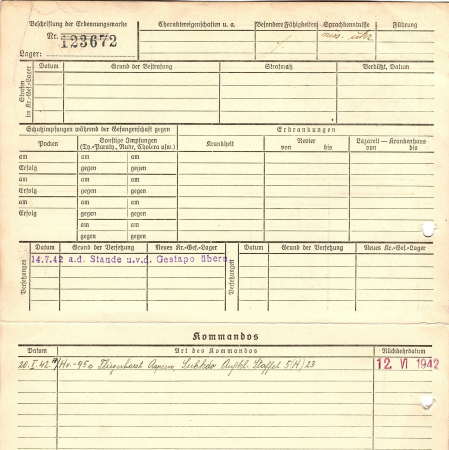 Beschriftung der Erkennungsmarke
Nr. 123672
Lager:
Charaktereigenschaften u. a.
Besondere Fähigkeiten
Sprachkenntnisse
russ. ukr.
Führung
Strafen im Kr.-Gef.-Lager
Datum Grund der Bestrafung Strafmaß Verbüßt, Datum
Schutzimpfungen während der Gefangenschaft gegen
Erkrankungen
Pocken
Sonstige Impfungen
(Ty.-Paraty., Ruhr, Cholera usw.)
Krankheit
Revier
von bis
Lazarett — Krankenhaus
von bis
am am am
Erfolg gegen gegen
am am am
Erfolg gegen gegen
am am am
Erfolg gegen gegen
am am
gegen gegen
Versetzungen
Datum Grund der Versetzung Neues Kr.-Gef.-Lager
14.7.42 a.d. Stande u.v.d. Gestapo übern.
Versetzungen
Datum Grund der Versetzung Neues Kr.-Gef.-Lager
Kommandos
Datum Art des Kommandos Rückkehrdatum
Fliegerhorst Aspern Aufkl. Staffel 5(H)23 12 VI 1942